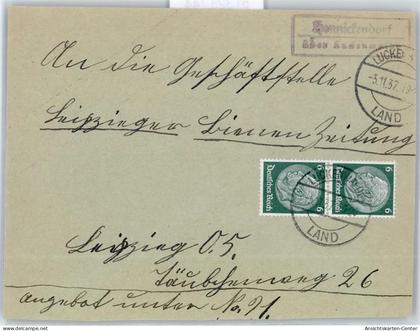 Hennickendorf
über Luckenwalde
LUCKENWALDE
-5.11.37.
LAND
An die Geschäftsstelle
Leipziger Bienen Zeitung
Deutsches Reich 6
Deutsches Reich 6
LAND
Leipzig O. 5.
Täubchenweg 26
Angebot unter No. 91.
www.ansichtskarten-center.de
Ansichtskarten-Center.de